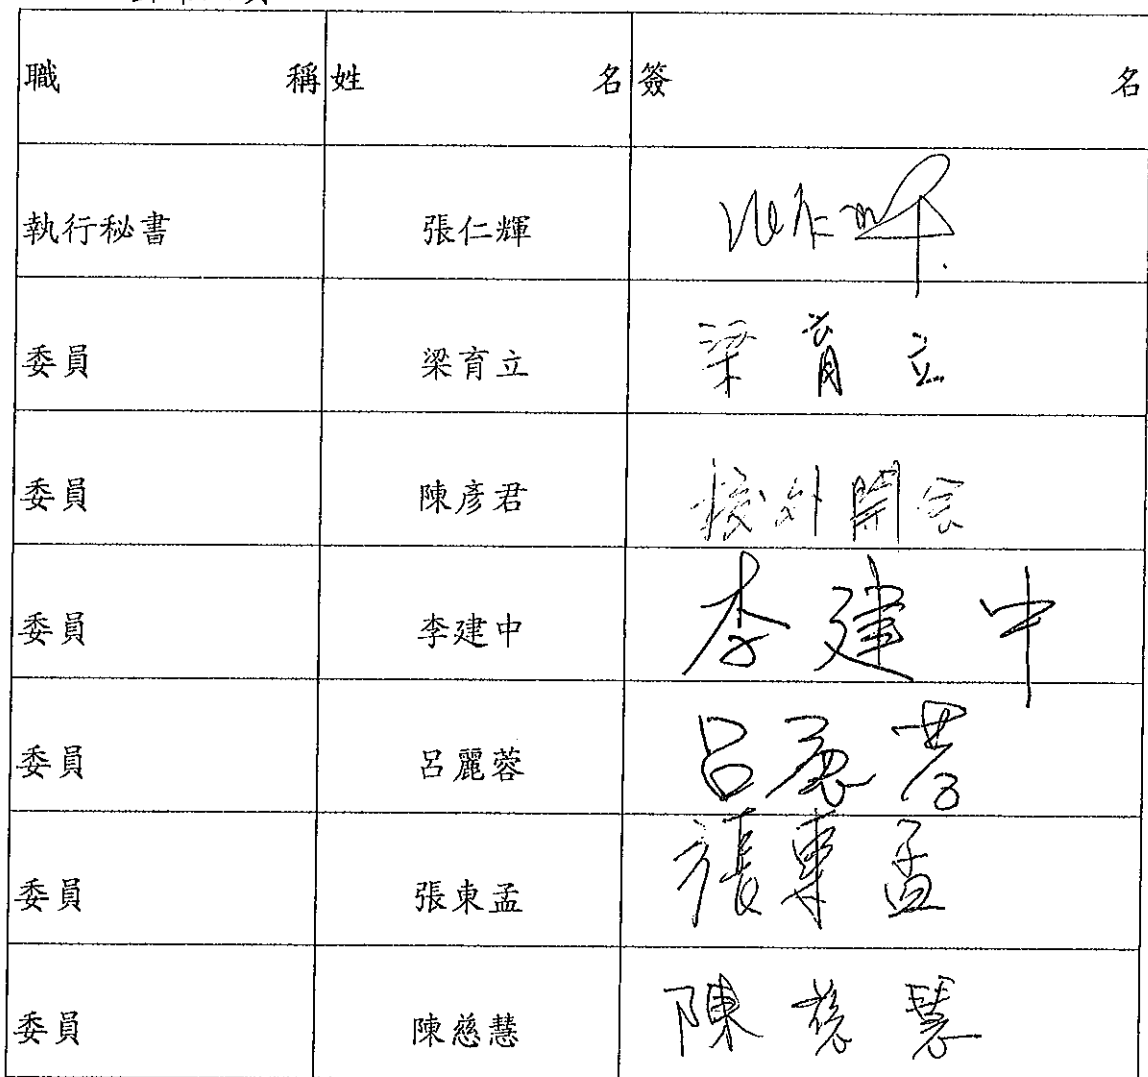 職稱 姓名 簽名
執行秘書 張仁輝 張仁輝
委員 梁育立 梁育立
委員 陳彥君 校外開会
委員 李建中 李建中
委員 呂麗蓉 呂麗蓉
委員 張東孟 張東孟
委員 陳慈慧 陳慈慧